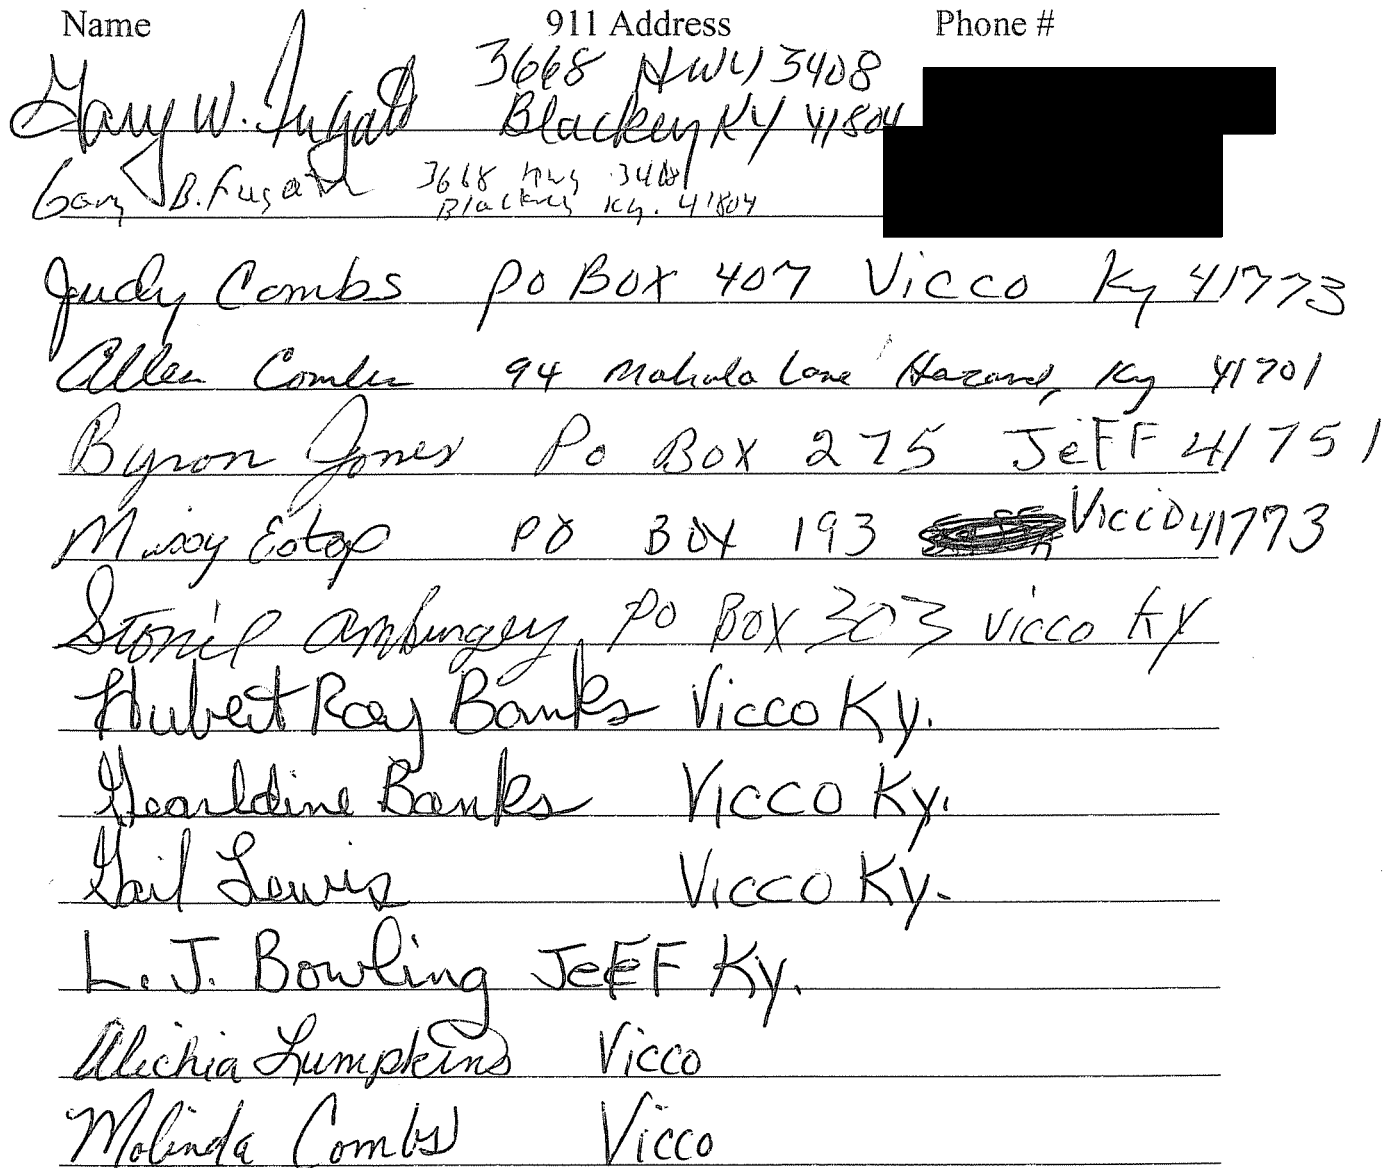 Name 911 Address Phone #
Gary W. Fugate 3668 HWY 3408
Blackey KY 41804
Gary B. Fugate 3668 Hwy 3408
Blackey Ky. 41804
Judy Combs PO Box 407 Vicco Ky 41773
Allen Combs 94 Mahala Lane Hazard, Ky 41701
Byron Jones Po Box 275 JeFF 41751
Missy Estep PO BOX 193 Vicco 41773
Stonie Amburgey PO Box 303 Vicco KY
Hubert Ray Banks Vicco Ky.
Gearldine Banks Vicco Ky.
Gail Lewis Vicco Ky.
L. J. Bowling JeFF Ky.
Alichia Lumpkins Vicco
Malinda Combs Vicco